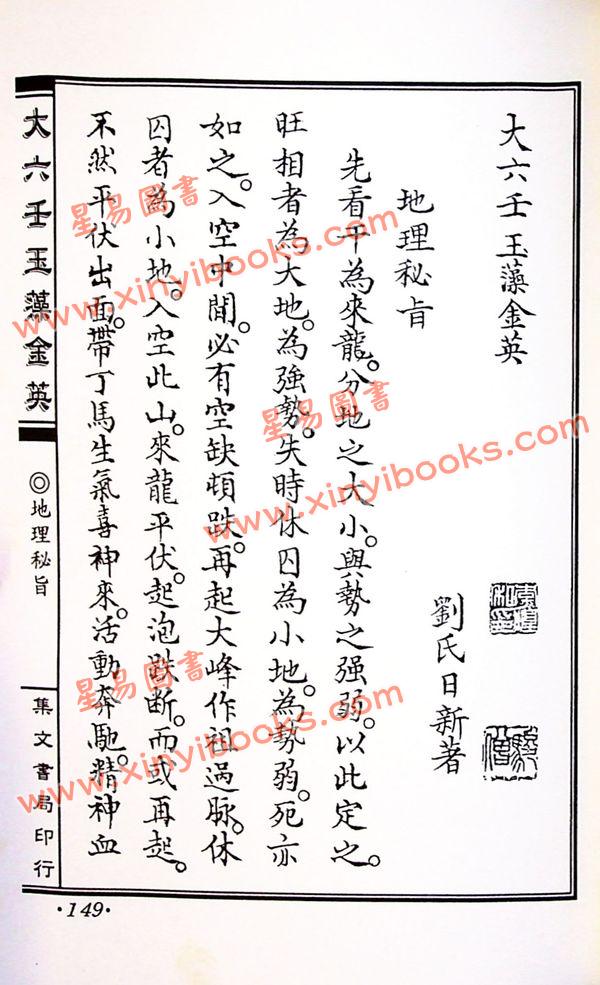 大六壬玉藻金英
劉氏日新著
地理秘旨
先看干為來龍。分地之大小。與勢之强弱。以此定之。
旺相者為大地。為強勢。失時休囚為小地。為勢弱。死亦
如之。入空中間。必有空缺頓跌。再起大峰作祖過脉。休
囚者為小地。入空此山。來龍平伏。起泡跌断。而或再起。
不然平伏出面。帶丁馬生氣喜神來。活動奔馳。精神血
大六壬玉藻金英
◎地理秘旨
集文書局印行
·149·
星易圖書
www.xinyibooks.com
星易圖書
www.xinyibooks.com
星易圖書
www.xinyibooks.com